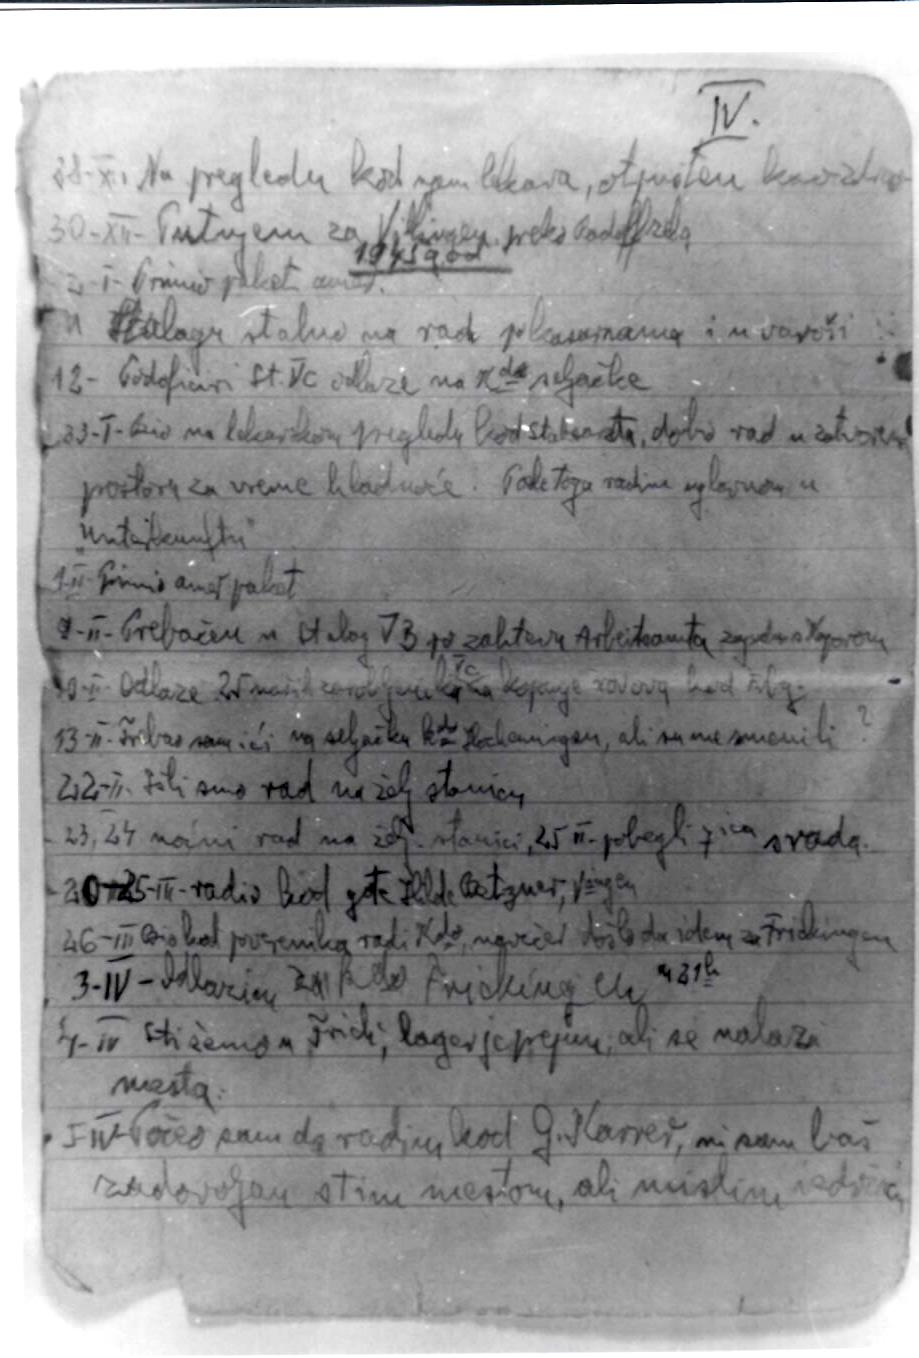 IV.
28-XII Na pregledu kod njem lekara, otpušten kao zdrav
30-XII- Putujem za Vilingen preko Radolfzela
1945 god
2-I- Primio paket amer.
U Stalagu stalno na rad po kasarnama i u varoši
12- Podoficiri St. Vc odlaze na Kdo seljačke
23-I- Bio na lekarskom pregledu kod Stabsarzta, dobio rad u zatvorenom
prostoru za vreme hladnoće. Posle toga radim uglavnom u
"Unterkunftu"
1-II- Primio amer paket
9-II- Prebačen u Stalag VB po zahtevu Arbeitsamta zajedno s
10-II- Odlaze 25 naših zarobljenika Vc na kopanje rovova kod
13-II- Trebao sam ići na seljačku kdo Hochemingen, ali su me smenili ?
22-II- Išli smo rad na želj stanicu
23, 24 noćni rad na želj. stanici, 25 II- pobegli 7ica s rada.
20-25-III- radio kod gđe Hilde
26-III Bio kod poverenika radi Kdo, naveče došlo da idem za Frickingen
3-IV- Odlazim za Kdo Frickingen u 21h
4-IV Stižemo u Frick, lager je prepun, ali se nalazi
mesta.
5-IV- Počeo sam da radim kod G. Karrer, nisam baš
zadovoljan s tim mestom, ali mislim